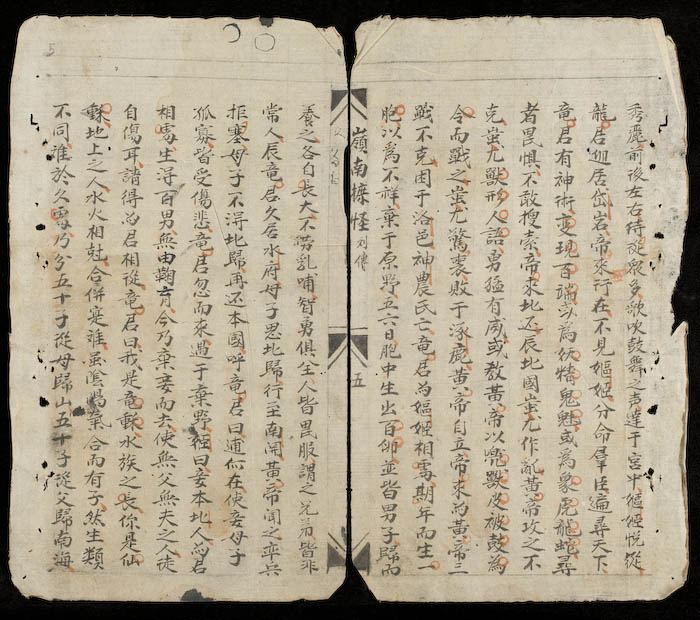 秀麗前後左右侍從眾多歌吹鼓舞之声達于宮中嫗姬悅從
龍君迎居岱岩帝來行在不見嫗姬分命羣臣遍尋天下
竜君有神術变現百端以為妖精鬼魅或為象虎龍蛇尋
者畏惧不敢搜索帝來北还辰北國蚩尤作亂黃帝攻之不
克蚩尤獸形人語勇猛有威或教黃帝以兕獸皮被鼓為
令而戰之蚩尤驚衷敗于涿鹿黃帝自立帝來為黃帝三
戰不克困于洛邑神農氏亡竜君為嫗姬相處期年而生一
胞以為不祥棄于原野五六日胞中生出百卵並皆男子歸而
嶺南摭怪列傳
五
養之各自長大不帶乳哺智勇俱全人皆畏服謂之兄弟皆非
常人辰竜君久居水府母子思北歸行至南関黃帝聞之率兵
拒塞母子不淂北歸再还本國呼竜君曰逋何在使妾母子
孤寡皆受傷悲竜君忽而來遇于棄野姬曰妾本北人為君
相處生淂百男無由鞠育今乃棄妾而去使無父無夫之人徒
自傷耳請得為君相從竜君曰我是竜種水族之長你是仙
種地上之人水火相尅合併寔難虽陰陽氣合而有子然生類
不同难於久處乃分五十子從母歸山五十子從父歸南海